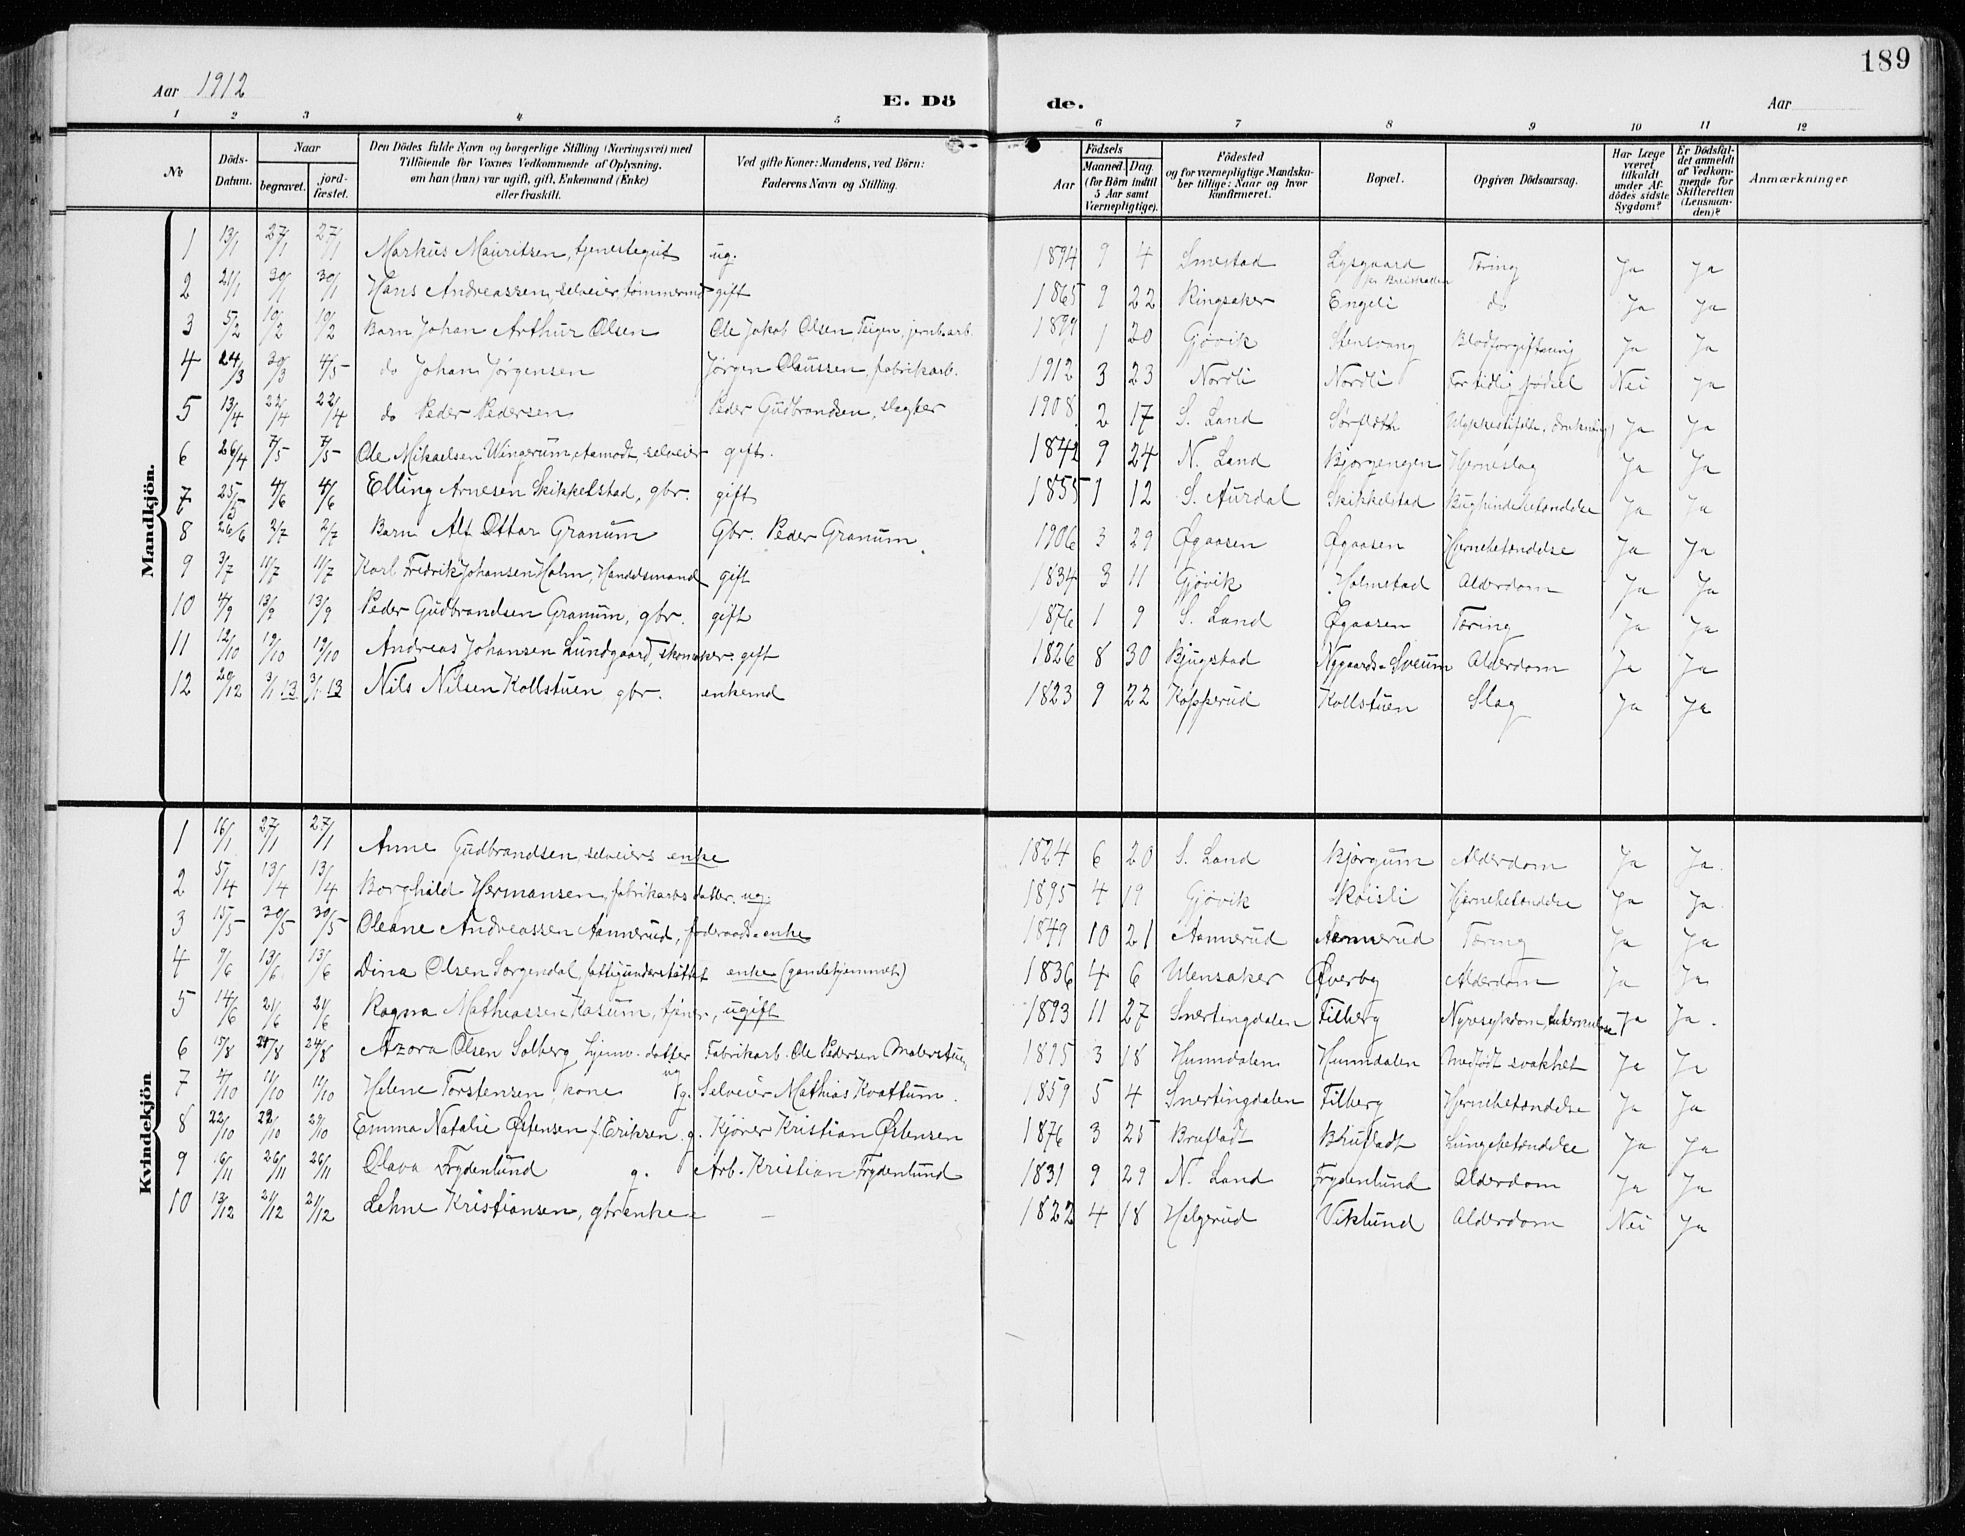 189
Aar 1912
E. Dö de.
Aar
1 2 3 4 5 6 7 8 9 10 11 12
No
Döds-Datum.
Naar
begravet.
jord-fæstet.
Den Dödes fulde Navn og borgerlige Stilling (Næringsvei) med
Tilföiende for Voxnes Vedkommende af Oplysning,
om han (hun) var ugift, gift, Enkemand (Enke)
eller fraskilt.
Ved gifte Koner: Mandens, ved Börn:
Faderens Navn og Stilling.
Födsels
Aar
Maaned
Dag
(for Börn indtil
5 Aar samt
Værnepligtige).
Födested
og for værnepligtige Mandska-
ber tillige: Naar og hvor
konfirmeret.
Bopæl.
Opgiven Dödsaarsag.
Har Læge
været
tilkaldt
under Af-
dödes sidste
Sygdom?
Er Dödsfal-
det anmeldt
af Vedkom-
mende for
Skifteretten
(Lensman-
den)?
Anmærkninger
Mandkjön.
1 13/1 27/1 27/1 Markus Mauritsen, tjenestegut ug. 1894 9 4 Smestad Lysgaard Tæring Ja Ja
2 21/1 30/1 30/1 Hans Andreassen, selveier, tømmermd gift 1865 9 22 Ringsaker Engeli do Ja Ja
3 5/2 10/2 10/2 Barn Johan Arthur Olsen Ole Jakob Olsen Teigen, jernb.arb. 1899 1 20 Gjøvik Stensvang Blodforgiftning Ja Ja
4 24/3 30/3 4/5 do Johan Jørgensen Jørgen Claussen, fabrikarb. 1912 3 23 Nordli Nordli For tidlig fødsel Nei Ja
5 13/4 22/4 22/4 do Peder Pedersen Peder Gudbrandsen, slagter 1908 2 17 S. Land Sørfloth Ulykkestilfelde, drukning Ja Ja
6 26/4 7/5 7/5 Ole Mikaelsen Vingerum, Aamodt, selveier gift. 1842 9 24 N. Land Bjørgengen Hjerneslag Ja Ja
7 25/5 4/6 4/6 Elling Arnesen Skikkelstad, gbr. gift 1855 1 12 S. Aurdal Skikkelstad Bughindebetændelse Ja Ja
8 26/6 2/7 2/7 Barn Alf Ottar Granum Gbr. Peder Granum 1906 3 29 Øgaasen Øgaasen Hjernebetændelse Ja Ja
9 3/7 11/7 11/7 Karl Fredrik Johansen Holm, Handelsmand gift 1834 3 11 Gjøvik Holmstad Alderdom Ja Ja
10 4/9 13/9 13/9 Peder Gudbrandsen Granum, gbr. gift 1876 1 9 S. Land Øgaasen Tæring Ja Ja
11 12/10 19/10 19/10 Andreas Johansen Lundgaard, skomaker. gift 1826 8 30 Bjugstad Nygaards-Sveum Alderdom Ja Ja
12 20/12 3/1 13 3/1 13 Nils Nilsen Kollstuen, gbr. enkemd 1823 9 22 Kopperud Kollstuen Slag Ja Ja
Kvindekjön
1 16/1 27/1 27/1 Anne Gudbrandsen, selveiers enke 1824 6 20 S. Land Bjørgum Alderdom Ja Ja.
2 5/4 13/4 13/4 Borghild Hermansen, fabrikarbs datter. ug. 1895 4 19 Gjøvik Skoisli Hjernebetændelse Ja Ja.
3 15/5 30/5 30/5 Oleane Andreassen Aannerud, føderaads-enke 1849 10 21 Aannerud Aannerud Tæring Ja Ja
4 9/6 13/6 13/6 Dina Olsen Sorgendal, fattigunderstøttet enke (gamlehjemmet) 1836 4 6 Ulensaker Øverby Alderdom Ja Ja
5 14/6 21/6 21/6 Ragna Mathiassen Kasum, tjener., ugift 1893 11 27 Snertingdalen Filberg Nyresykdom, tuberculose Ja Ja.
6 15/8 24/8 24/8 Azora Olsen Solberg hjemv. datter ug Fabrikarb. Ole Pedersen Malerstuen 1895 3 18 Hunndalen Hunndalen Medfødt svakhet Ja Ja
7 4/10 11/10 11/10 Helene Torstensen, kone g. Selveier Mathias Kvattum. 1859 5 4 Snertingdalen Filberg Hjernebetændelse Ja Ja
8 22/10 29/10 29/10 Emma Natalie Østensen f. Eriksen g. Kjører Kristian Østensen 1876 3 25 Brufladt Brufladt Lungebetændelse Ja Ja
9 16/11 26/11 26/11 Olava Frydenlund g. Arb. Kristian Frydenlund 1831 9 29 N. Land Frydenlund Alderdom Ja Ja
10 13/12 21/12 21/12 Lehne Kristiansen, gbrenke - 1822 4 18 Helgerud Viklund Alderdom Nei Ja